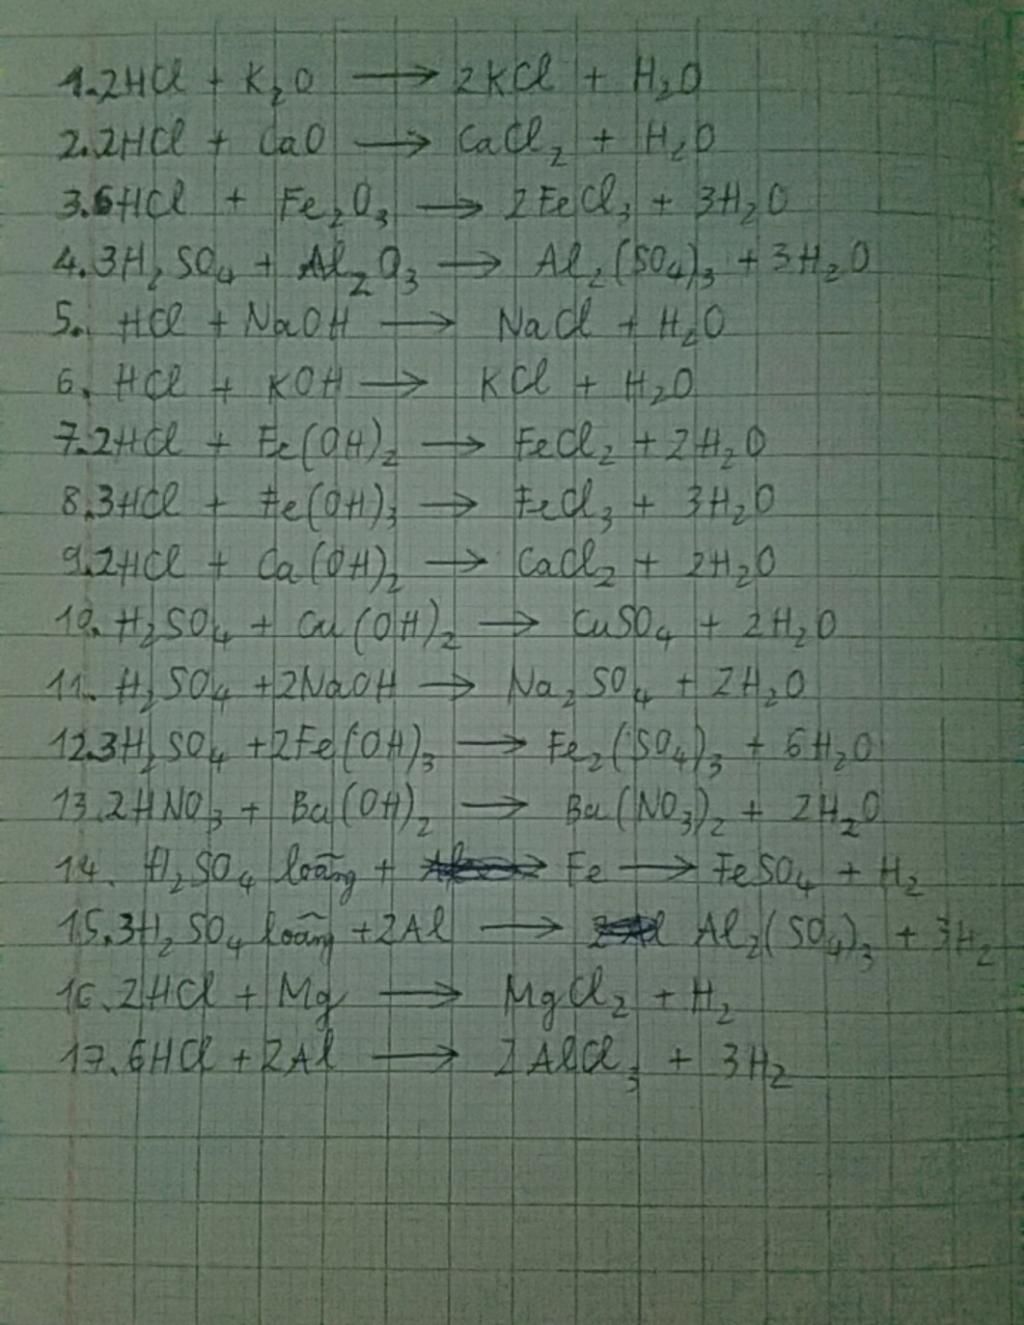 1. 2HCl + K₂O ⟶ 2KCl + H₂O
2. 2HCl + CaO ⟶ CaCl₂ + H₂O
3. 6HCl + Fe₂O₃ ⟶ 2FeCl₃ + 3H₂O
4. 3H₂SO₄ + Al₂O₃ ⟶ Al₂(SO₄)₃ + 3H₂O
5. HCl + NaOH ⟶ NaCl + H₂O
6. HCl + KOH ⟶ KCl + H₂O
7. 2HCl + Fe(OH)₂ ⟶ FeCl₂ + 2H₂O
8. 3HCl + Fe(OH)₃ ⟶ FeCl₃ + 3H₂O
9. 2HCl + Ca(OH)₂ ⟶ CaCl₂ + 2H₂O
10. H₂SO₄ + Cu(OH)₂ ⟶ CuSO₄ + 2H₂O
11. H₂SO₄ + 2NaOH ⟶ Na₂SO₄ + 2H₂O
12. 3H₂SO₄ + 2Fe(OH)₃ ⟶ Fe₂(SO₄)₃ + 6H₂O
13. 2HNO₃ + Ba(OH)₂ ⟶ Ba(NO₃)₂ + 2H₂O
14. H₂SO₄ loãng + Fe ⟶ FeSO₄ + H₂
15. 3H₂SO₄ loãng + 2Al ⟶ Al₂(SO₄)₃ + 3H₂
16. 2HCl + Mg ⟶ MgCl₂ + H₂
17. 6HCl + 2Al ⟶ 2AlCl₃ + 3H₂